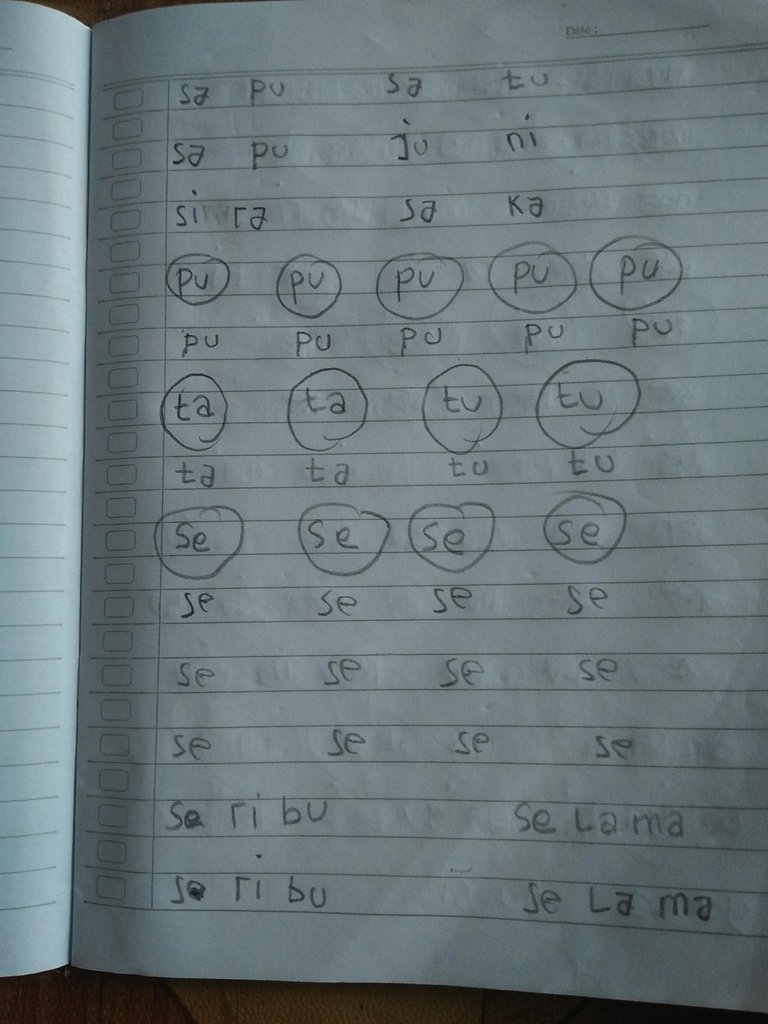 Date :
sa pu sa tu
sa pu ju ni
si ra sa ka
pu pu pu pu pu
pu pu pu pu pu
ta ta tu tu
ta ta tu tu
se se se se
se se se se
se se se se
se se se se
se ri bu se la ma
se ri bu se la ma